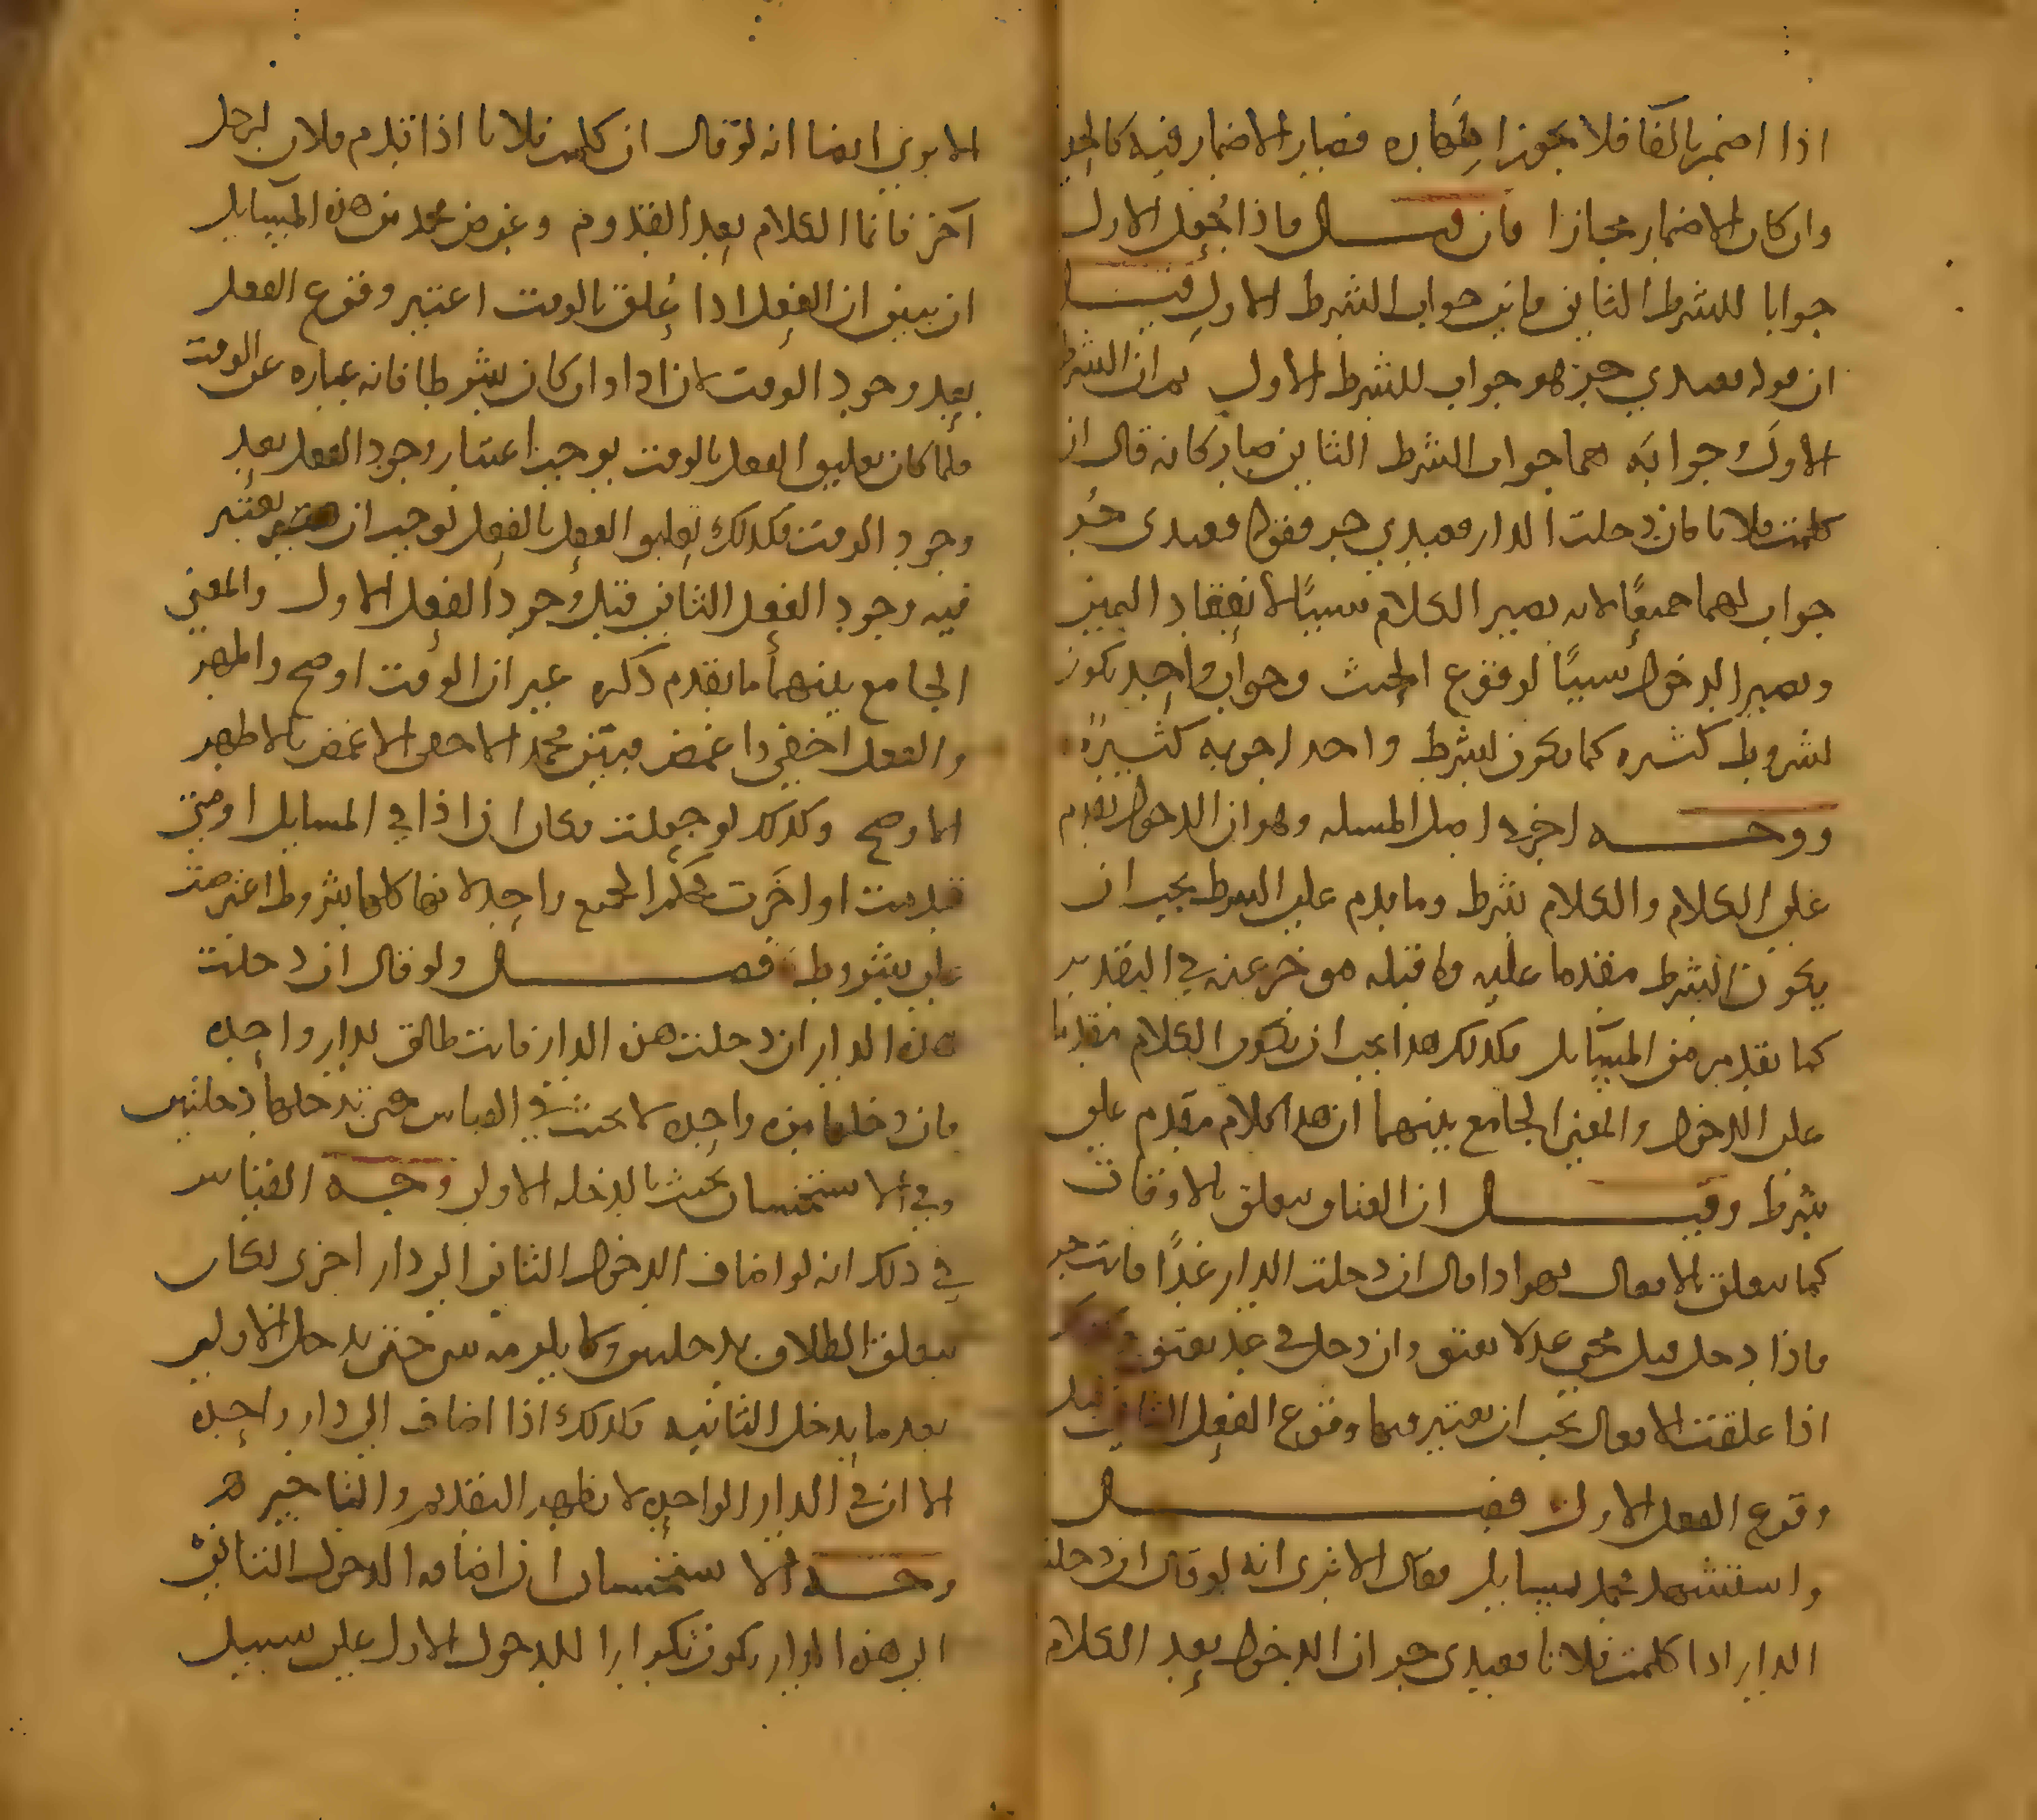 اذا اضمر بالفا فلا يجوز اظهاره فصار الاضمار فيه كالحد
وان كان الاضمار مجازا فان قيل فاذا جعل الاول
جوابا للشرط الثاني فاين جواب الشرط الاول قيل
ان قوله فعبدي حر هو جواب للشرط الاول ثم ان الشرط
الاول وجوابه هما جواب الشرط الثاني صار كانه قال ان
كلمت فلانا فان دخلت الدار فعبدي حر فقوله فعبدي حر
جواب لهما جميعا لانه يصير الكلام سببا لانعقاد اليمين
ويصير الدخول سببا لوقوع الحنث وجواب واحد يكون
لشروط كثيره كما يكون لشرط واحد اجوبه كثيرة
ووجه اخر في اصل المسله وهو ان الدخول تقدم
على الكلام والكلام شرط وما يقدم على الشرط يجب ان
يكون الشرط مقدما عليه وما قبله مؤخر عنه في التقدير
كما تقدم من المسايل فكذلك هذا يجب ان يكون الكلام مقدما
على الدخول والمعنى الجامع بينهما ان هذا كلام مقدم على
شرط وقيل ان العتاق يتعلق بالاوقات
كما يتعلق بالافعال فهو اذا قال ان دخلت الدار غدا فانت حر
فاذا دخل قبل مجي غد لا يعتق وان دخل في غد يعتق
اذا علقت الافعال يجب ان يعتبر فيها وقوع الفعل الثاني قبل
وقوع الفعل الاول فصل
واستشهد محمد لمسايل فقال الا ترى انه لو قال ان دخلت
الدار اذا كلمت فلانا فعبدي حر ان الدخول بعد الكلام
الا يرى ايضا انه لو قال ان كلمت فلانا اذا قدم فلان لرجل
آخر فانما الكلام بعد القدوم وغرض محمد من هذه المسايل
ان يبين ان الفعل اذا عُلق بالوقت اعتبر وقوع الفعل
بعد وجود الوقت لان اذا وان كان شرطا فانه عباره عن الوقت
فلما كان تعليق الفعل بالوقت يوجب اعتبار وجود الفعل بعد
وجود الوقت فكذلك تعليق الفعل بالفعل يوجب ان يعتبر
فيه وجود الفعل الثاني قبل وجود الفعل الاول والمعنى
الجامع بينهما ما تقدم ذكره غير ان الوقت اوضح واظهر
والفعل اخفى واغمض فبين محمد الاخفى الاغمض بالاظهر
الاوضح وكذلك لو جعلت مكان ان اذا في المسايل او متى
قدمت او اخرت فحكم الجميع واحد لانها كلها شروط اعترضت
على شروط فصل ولو قال ان دخلت
هذه الدار ان دخلت هذه الدار فانت طالق لدار واحده
فان دخلها مره واحده لا يحنث في القياس حتى يدخلها دخلتين
وفي الاستحسان يحنث بالدخله الاولى وجه القياس
في ذلك انه لو اضاف الدخول الثاني الى دار اخرى لكان
يتعلق الطلاق بدخلتين ولا يلزمه شي حتى يدخل الاولى
بعد ما يدخل الثانيه فكذلك اذا اضاف الى دار واحده
الا ان في الدار الواحده لا يظهر التقديم والتاخير
وجه الاستحسان ان اضافه الدخول الثاني
الى هذه الدار يكون تكرارا للدخول الاول على سبيل